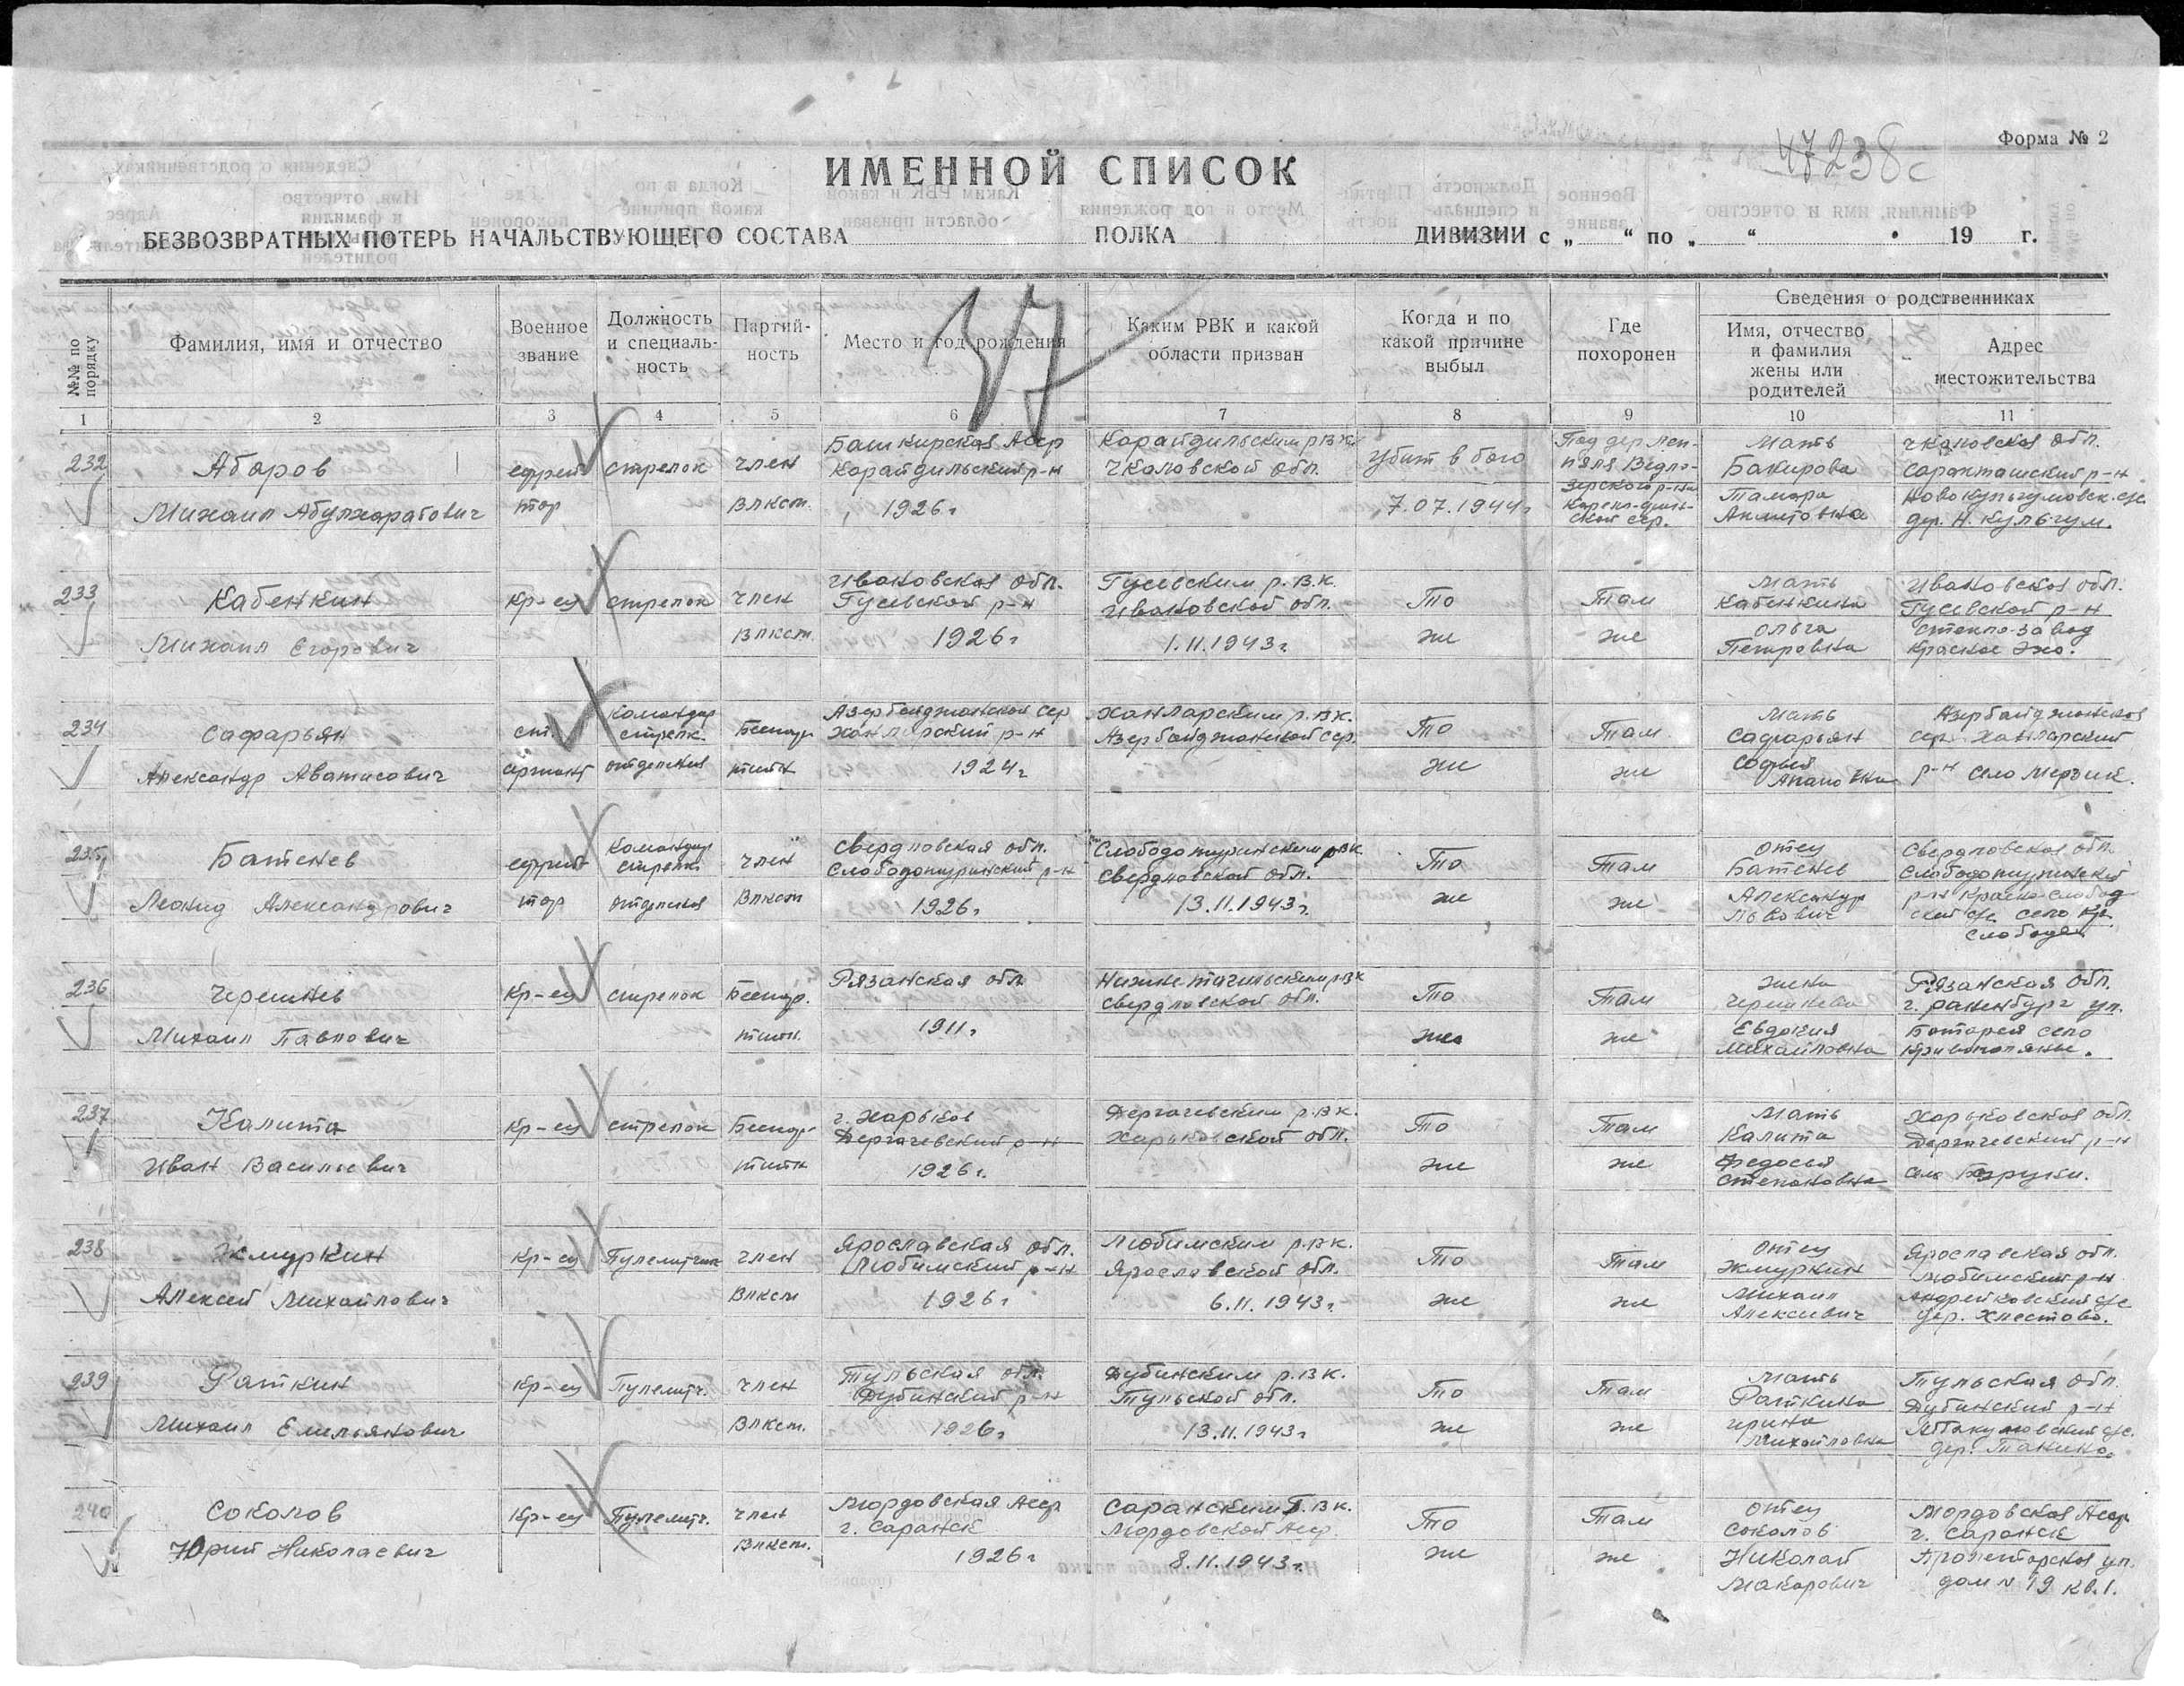 Форма № 2
47238с
ИМЕННОЙ СПИСОК
БЕЗВОЗВРАТНЫХ ПОТЕРЬ НАЧАЛЬСТВУЮЩЕГО СОСТАВА ПОЛКА ДИВИЗИИ с „ “ по „ “ 19 г.
37
№№ по порядку
Фамилия, имя и отчество
Военное звание
Должность и специаль-
ность
Партий-
ность
Место и год рождения
Каким РВК и какой
области призван
Когда и по
какой причине
выбыл
Где
похоронен
Сведения о родственниках
Имя, отчество
и фамилия
жены или
родителей
Адрес
местожительства
1 2 3 4 5 6 7 8 9 10 11
232 Аборов ефрей- стрелок член Башкирская Асср Карайдильским рвк убит в бою Под дер. Мать Чкаловская обл.
Карайдильский р-н Чкаловской обл. Бакирова Саракташский р-н
Михаил тор Влксм 1926г 7.07.1944г Тамара
дер. Н. Кульчум.
233 Кабенкин Кр-ец стрелок член Ивановская обл. Гусевским р.в.к. То Там Мать Ивановская обл.
Гусевской р-н Ивановской обл. Кабенкина Гусевской р-н
Михаил Егорович Влксм. 1926г 1.11.1943г. же же Ольга стекло-завод
Петровна Красное Эхо.
234 Сафарьян ст. командир Беспар Азербайджанской сср Ханларским р.вк. То Там Мать Азербайджанская
стрелк. Ханларский р-н Азербайджанской сср. Сафарьян сср. Ханларский
Александр Аватисович сержант отделения тийн 1924г же же р-н село
235 Батенев ефрей- Командир член Свердловская обл. Слободотуринским рвк То Там Отец Свердловская обл.
стрелк. Слободотуринский р-н Свердловской обл. Батенев Слободотуринский
Леонид Александрович тор отделения Влксм 1926г 13.11.1943г. же же Александр р-н Краснослобод
Львович ский с/с село Кр.
Слобода
236 Черешнев Кр-ец стрелок Беспар. Рязанская обл. Нижнетагильским рвк То Там Жена Рязанская обл.
Свердловской обл. г. Раненбург ул.
Михаил Павлович тийн. 1911г же же Евдокия Батарея село
Михайловна Кривополянье.
237 Калита Кр-ец стрелок Беспар г. Харьков Дергачевским р.вк. То Там Мать Харьковская обл.
Дергачевский р-н Харьковской обл. Калита Дергачевский р-н
Иван Васильевич тийн 1926г. же же Федосья село
Степановна
238 Жмуркин Кр-ец Пулеметчик член Ярославская обл. Любимским р.вк. То Там Отец Ярославская обл.
Любимский р-н Ярославской обл. Жмуркин Любимский р-н
Алексей Михайлович Влксм 1926г 6.11.1943г. же же Михаил Андрейковский с/с
Алексеевич дер. Хлестово.
239 Раткин Кр-ец Пулеметч. член Тульская обл. Дубинским р.вк. То Там Мать Тульская обл.
Дубинский р-н Тульской обл. Раткина Дубинский р-н
Михаил Емельянович Влксм. 1926г 13.11.1943г же же Ирина
Михайловна дер.
240 Соколов Кр-ец Пулеметч. член Мордовская Асср Саранским Г.вк. То Там Отец Мордовская Асср
г. Саранск Мордовской Асср. Соколов г. Саранск
Юрий Николаевич Влксм. 1926г 8.11.1943г. же же Николай Пролетарская ул.
Макарович дом N 19 кв. 1.